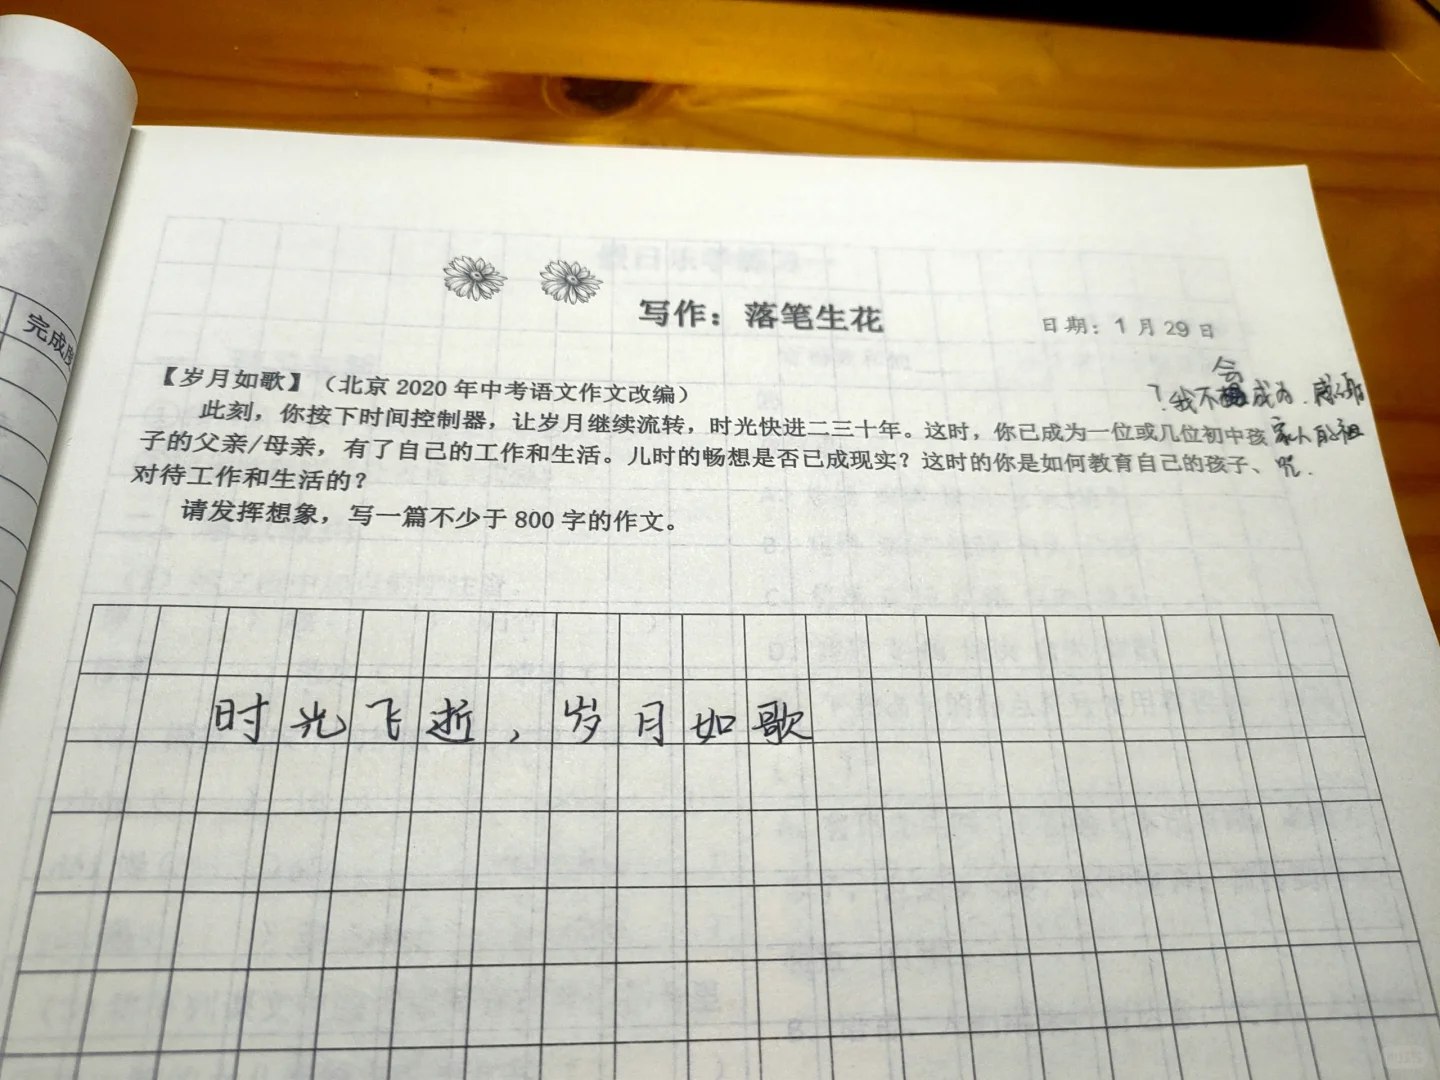 完成
写作：落笔生花
日期：1月29日
【岁月如歌】（北京2020年中考语文作文改编）
此刻，你按下时间控制器，让岁月继续流转，时光快进二三十年。这时，你已成为一位或几位初中孩
子的父亲/母亲，有了自己的工作和生活。儿时的畅想是否已成现实？这时的你是如何教育自己的孩子、
对待工作和生活的？
请发挥想象，写一篇不少于800字的作文。
会
？我不成为.感谢
家人的祖
咒.
时光飞逝，岁月如歌